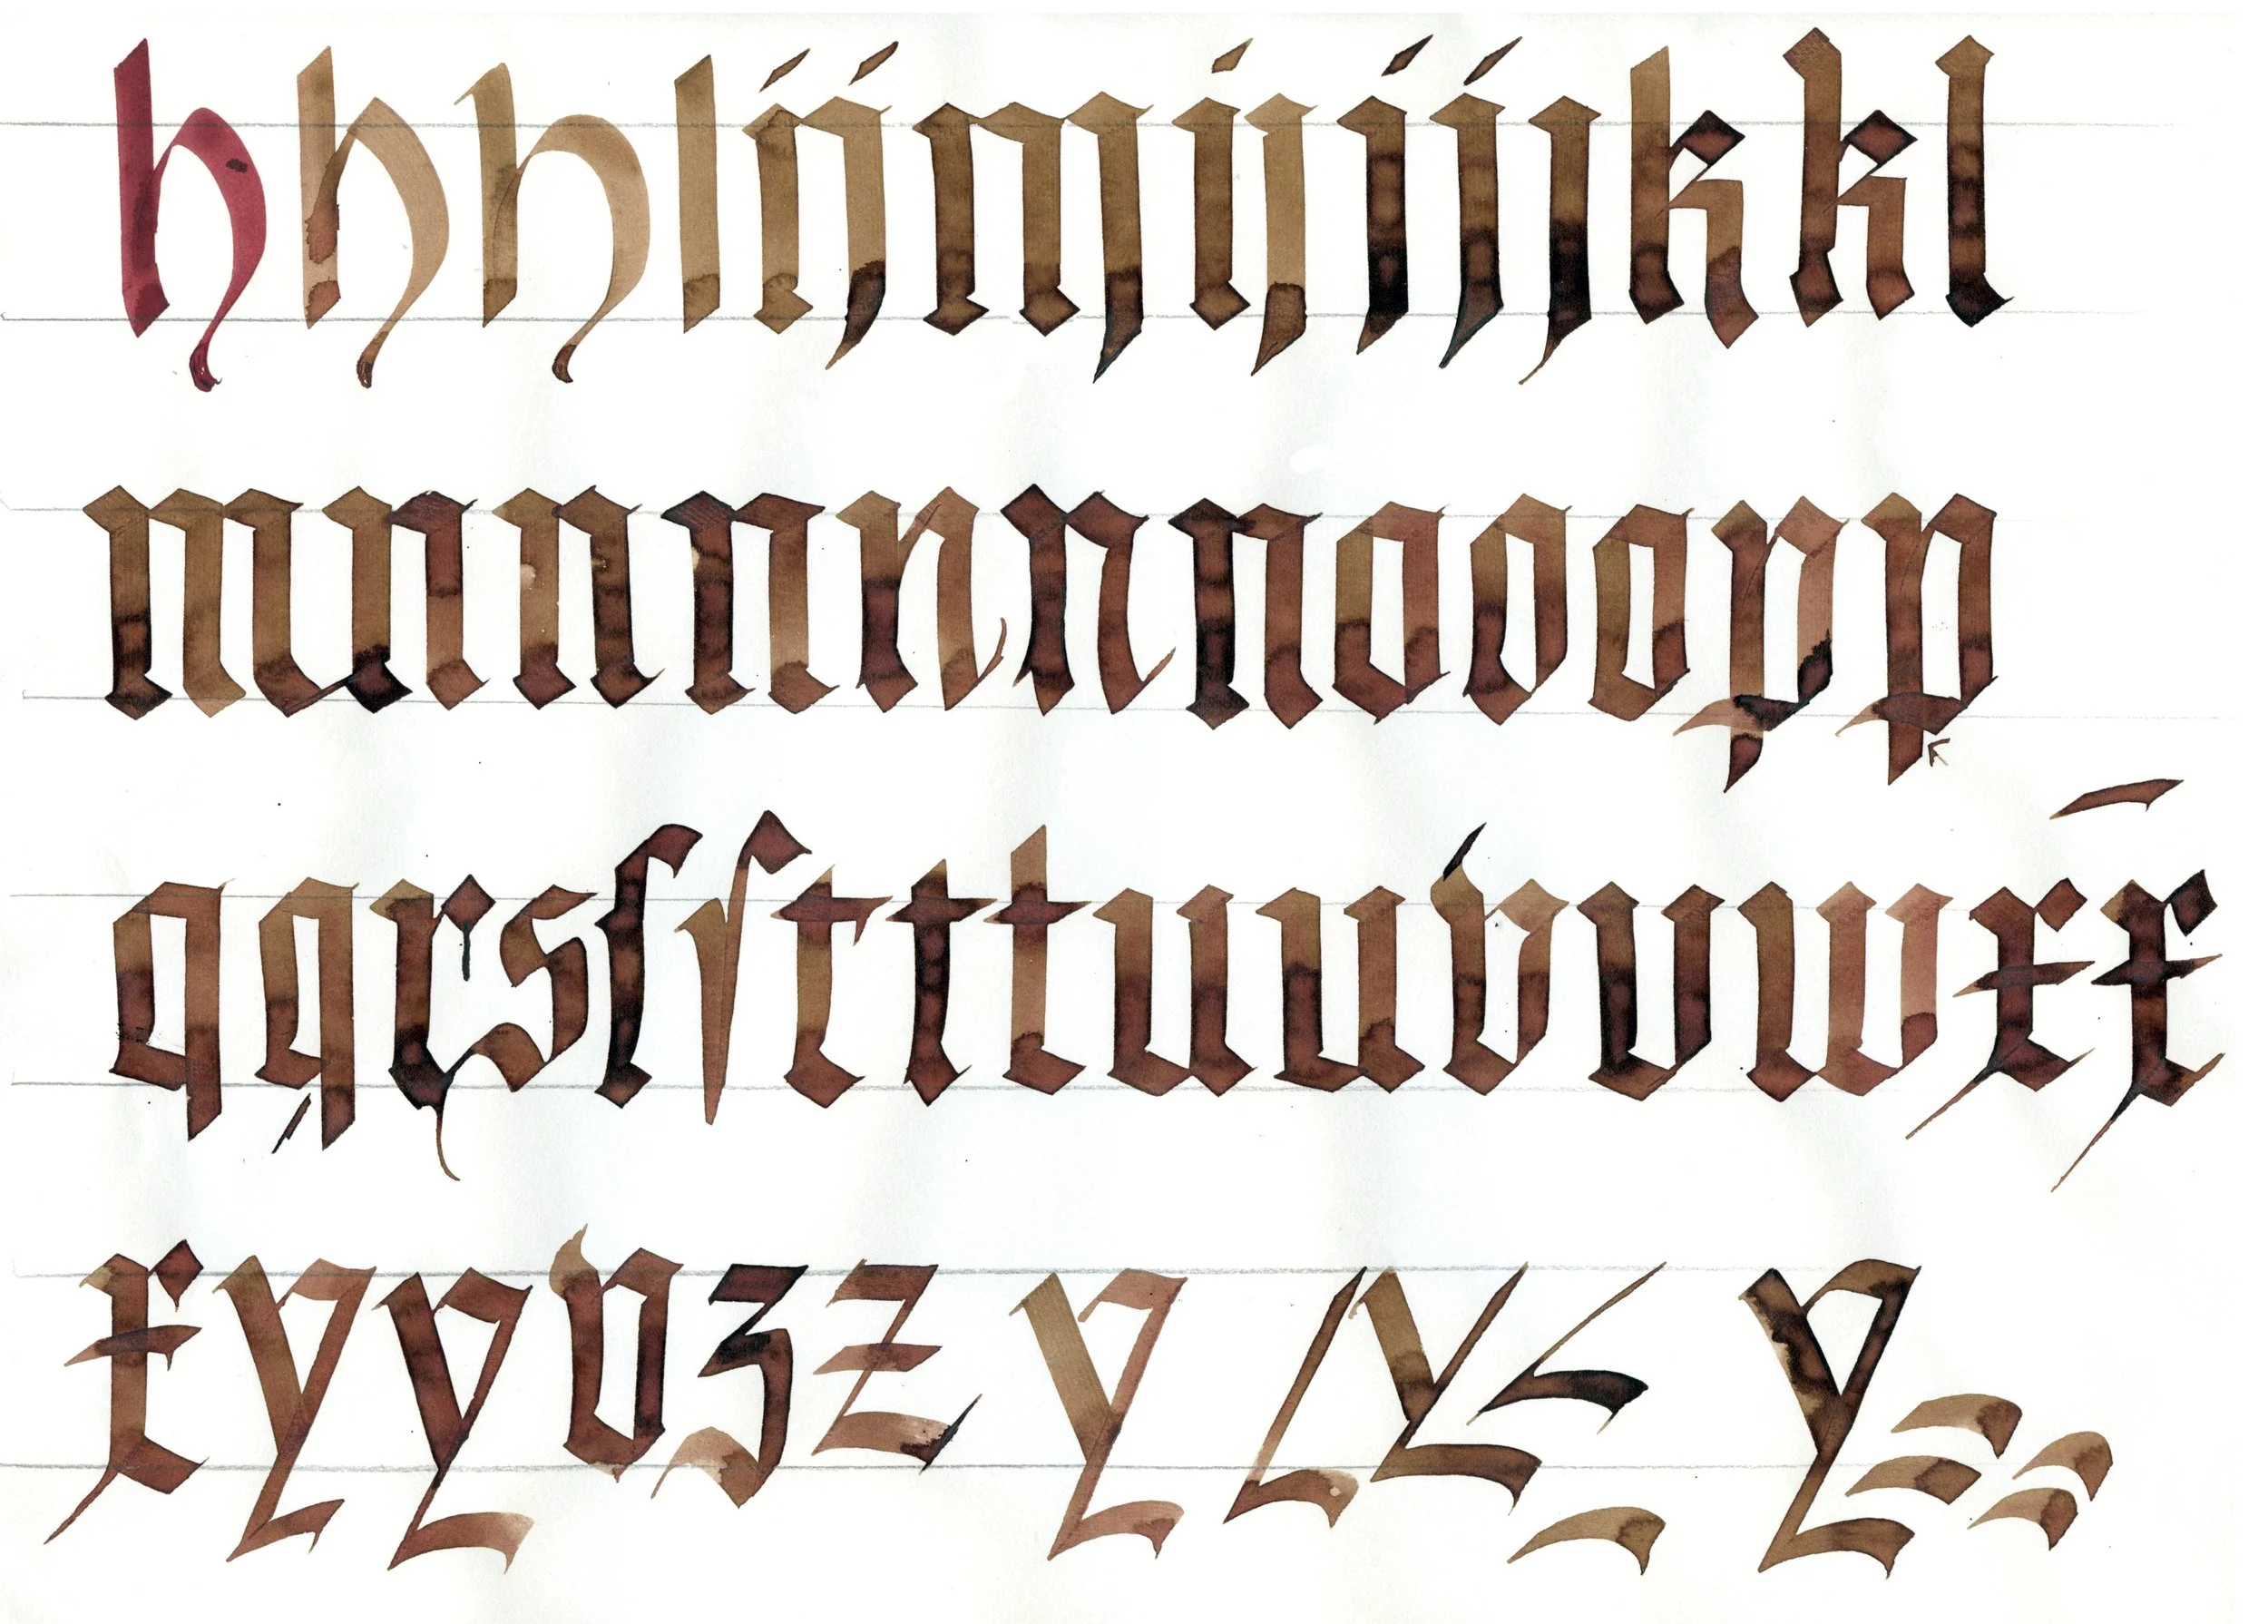 hhhlijmijjjjkkl
mnnnnnnooopp
qqrsſſtttuuvvwxx
xyyvzzyyy